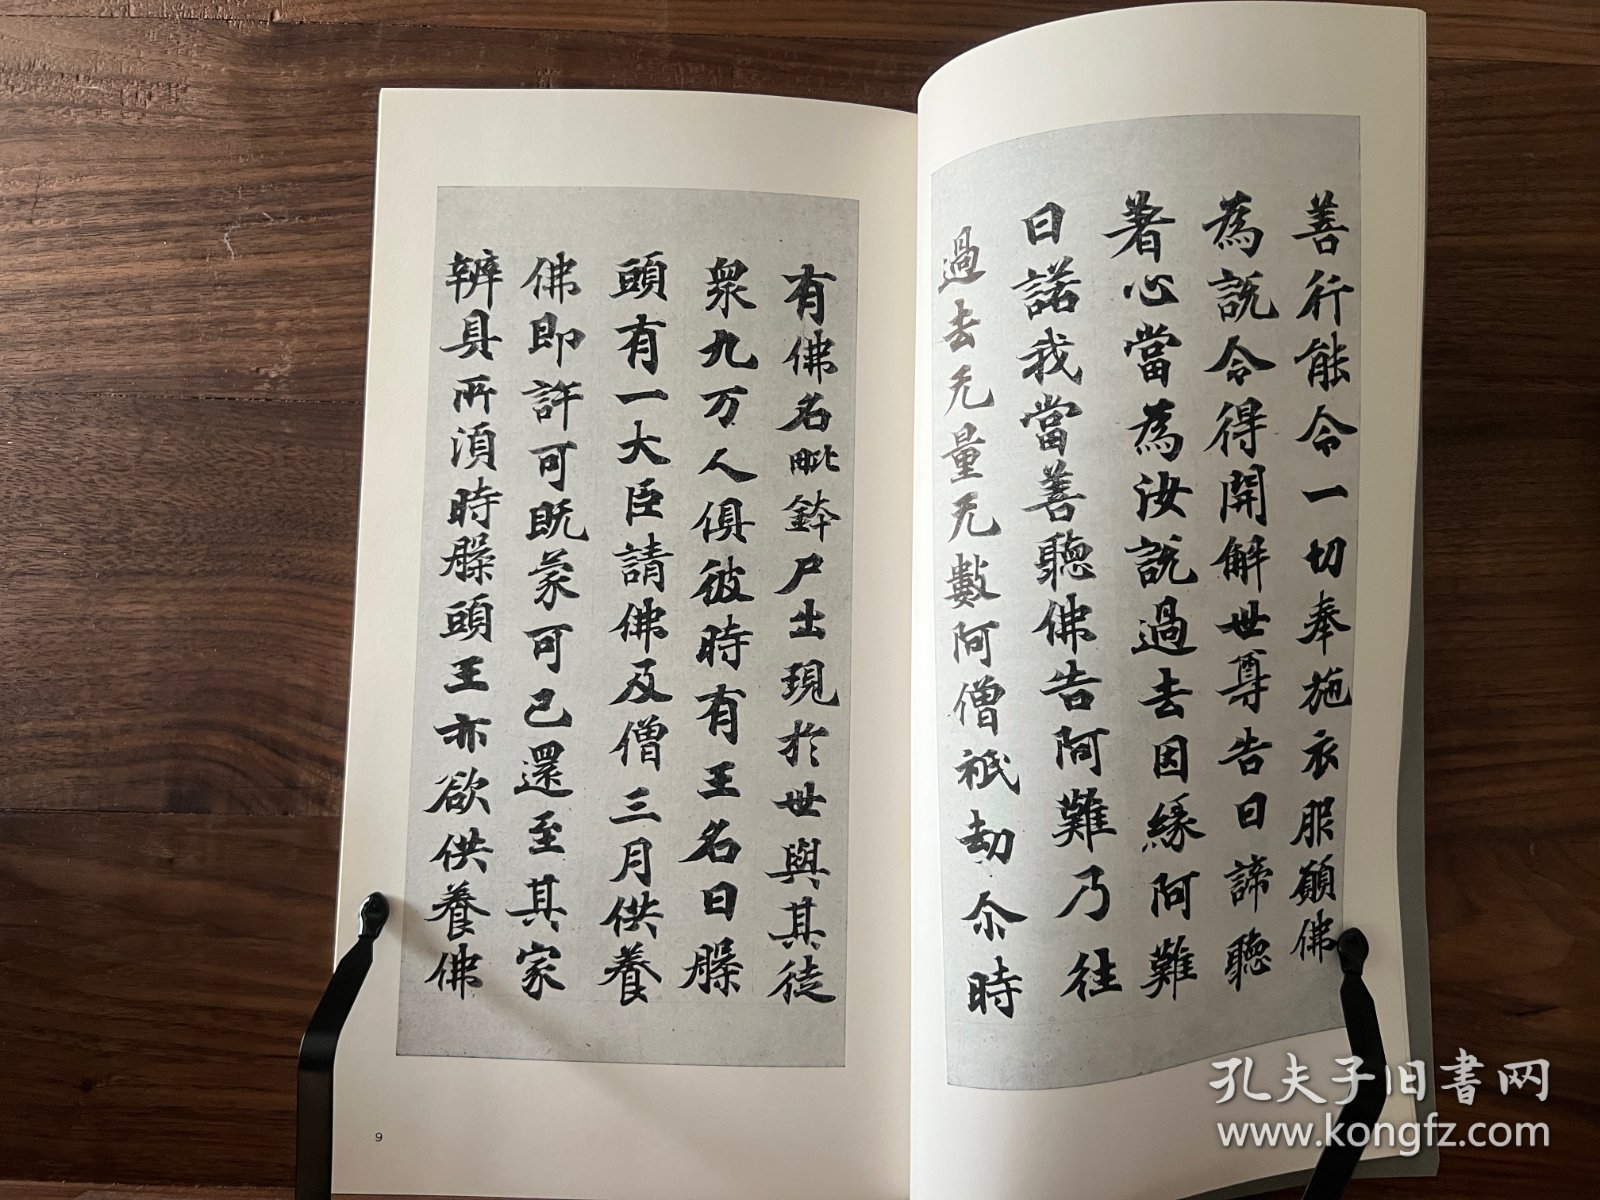 善行能令一切奉施衣服願佛
為說令得開解世尊告曰諦聽
著心當為汝說過去因緣阿難
曰諾我當善聽佛告阿難乃往
過去无量无數阿僧祇劫尒時
有佛名毗鉢尸出現於世與其徒
衆九万人俱彼時有王名曰槃
頭有一大臣請佛及僧三月供養
佛即許可既蒙可已還至其家
辦具所須時槃頭王亦欲供養佛
9
孔夫子旧书网
www.kongfz.com